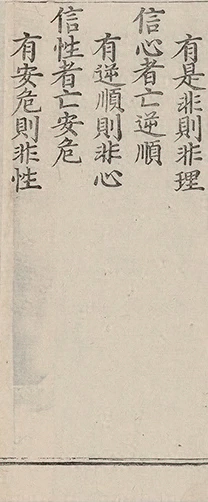 有是非則非理
信心者亡逆順
有逆順則非心
信性者亡安危
有安危則非性